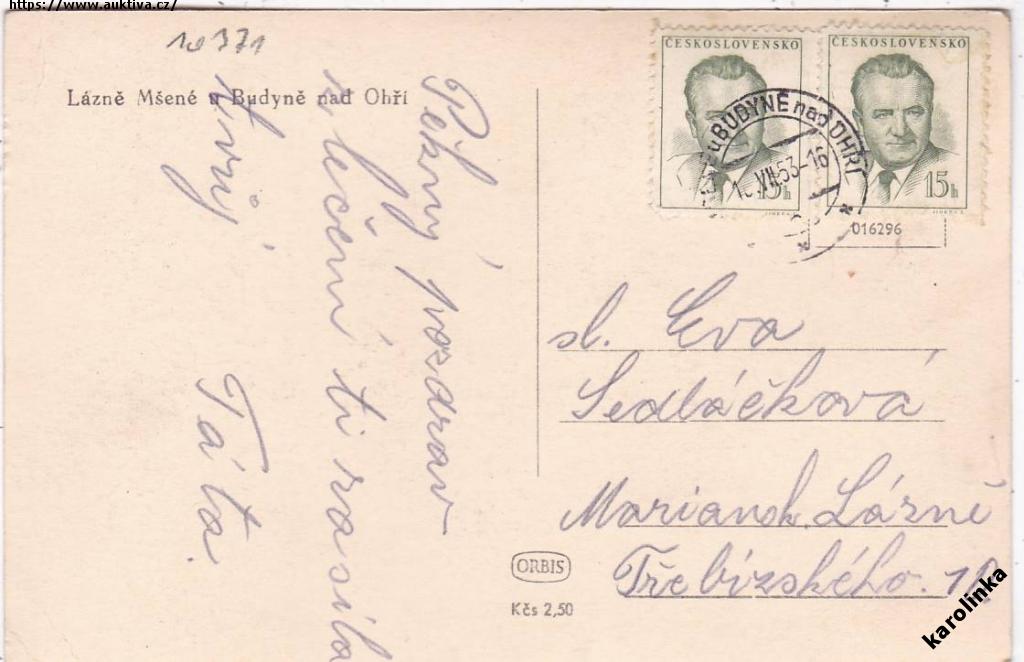 https://www.auktiva.cz/
10371
Lázně Mšené u Budyně nad Ohří
ČESKOSLOVENSKO
15h
ČESKOSLOVENSKO
15h
u BUDYNĚ nad OHŘÍ
VII.53-16
016296
Pěkný pozdrav
z léčení ti zasílá
tvůj
Táta.
sl. Eva
Sedláčková
Mariansk. Lázně
Třebízského.
ORBIS
Kčs 2,50
karolinka